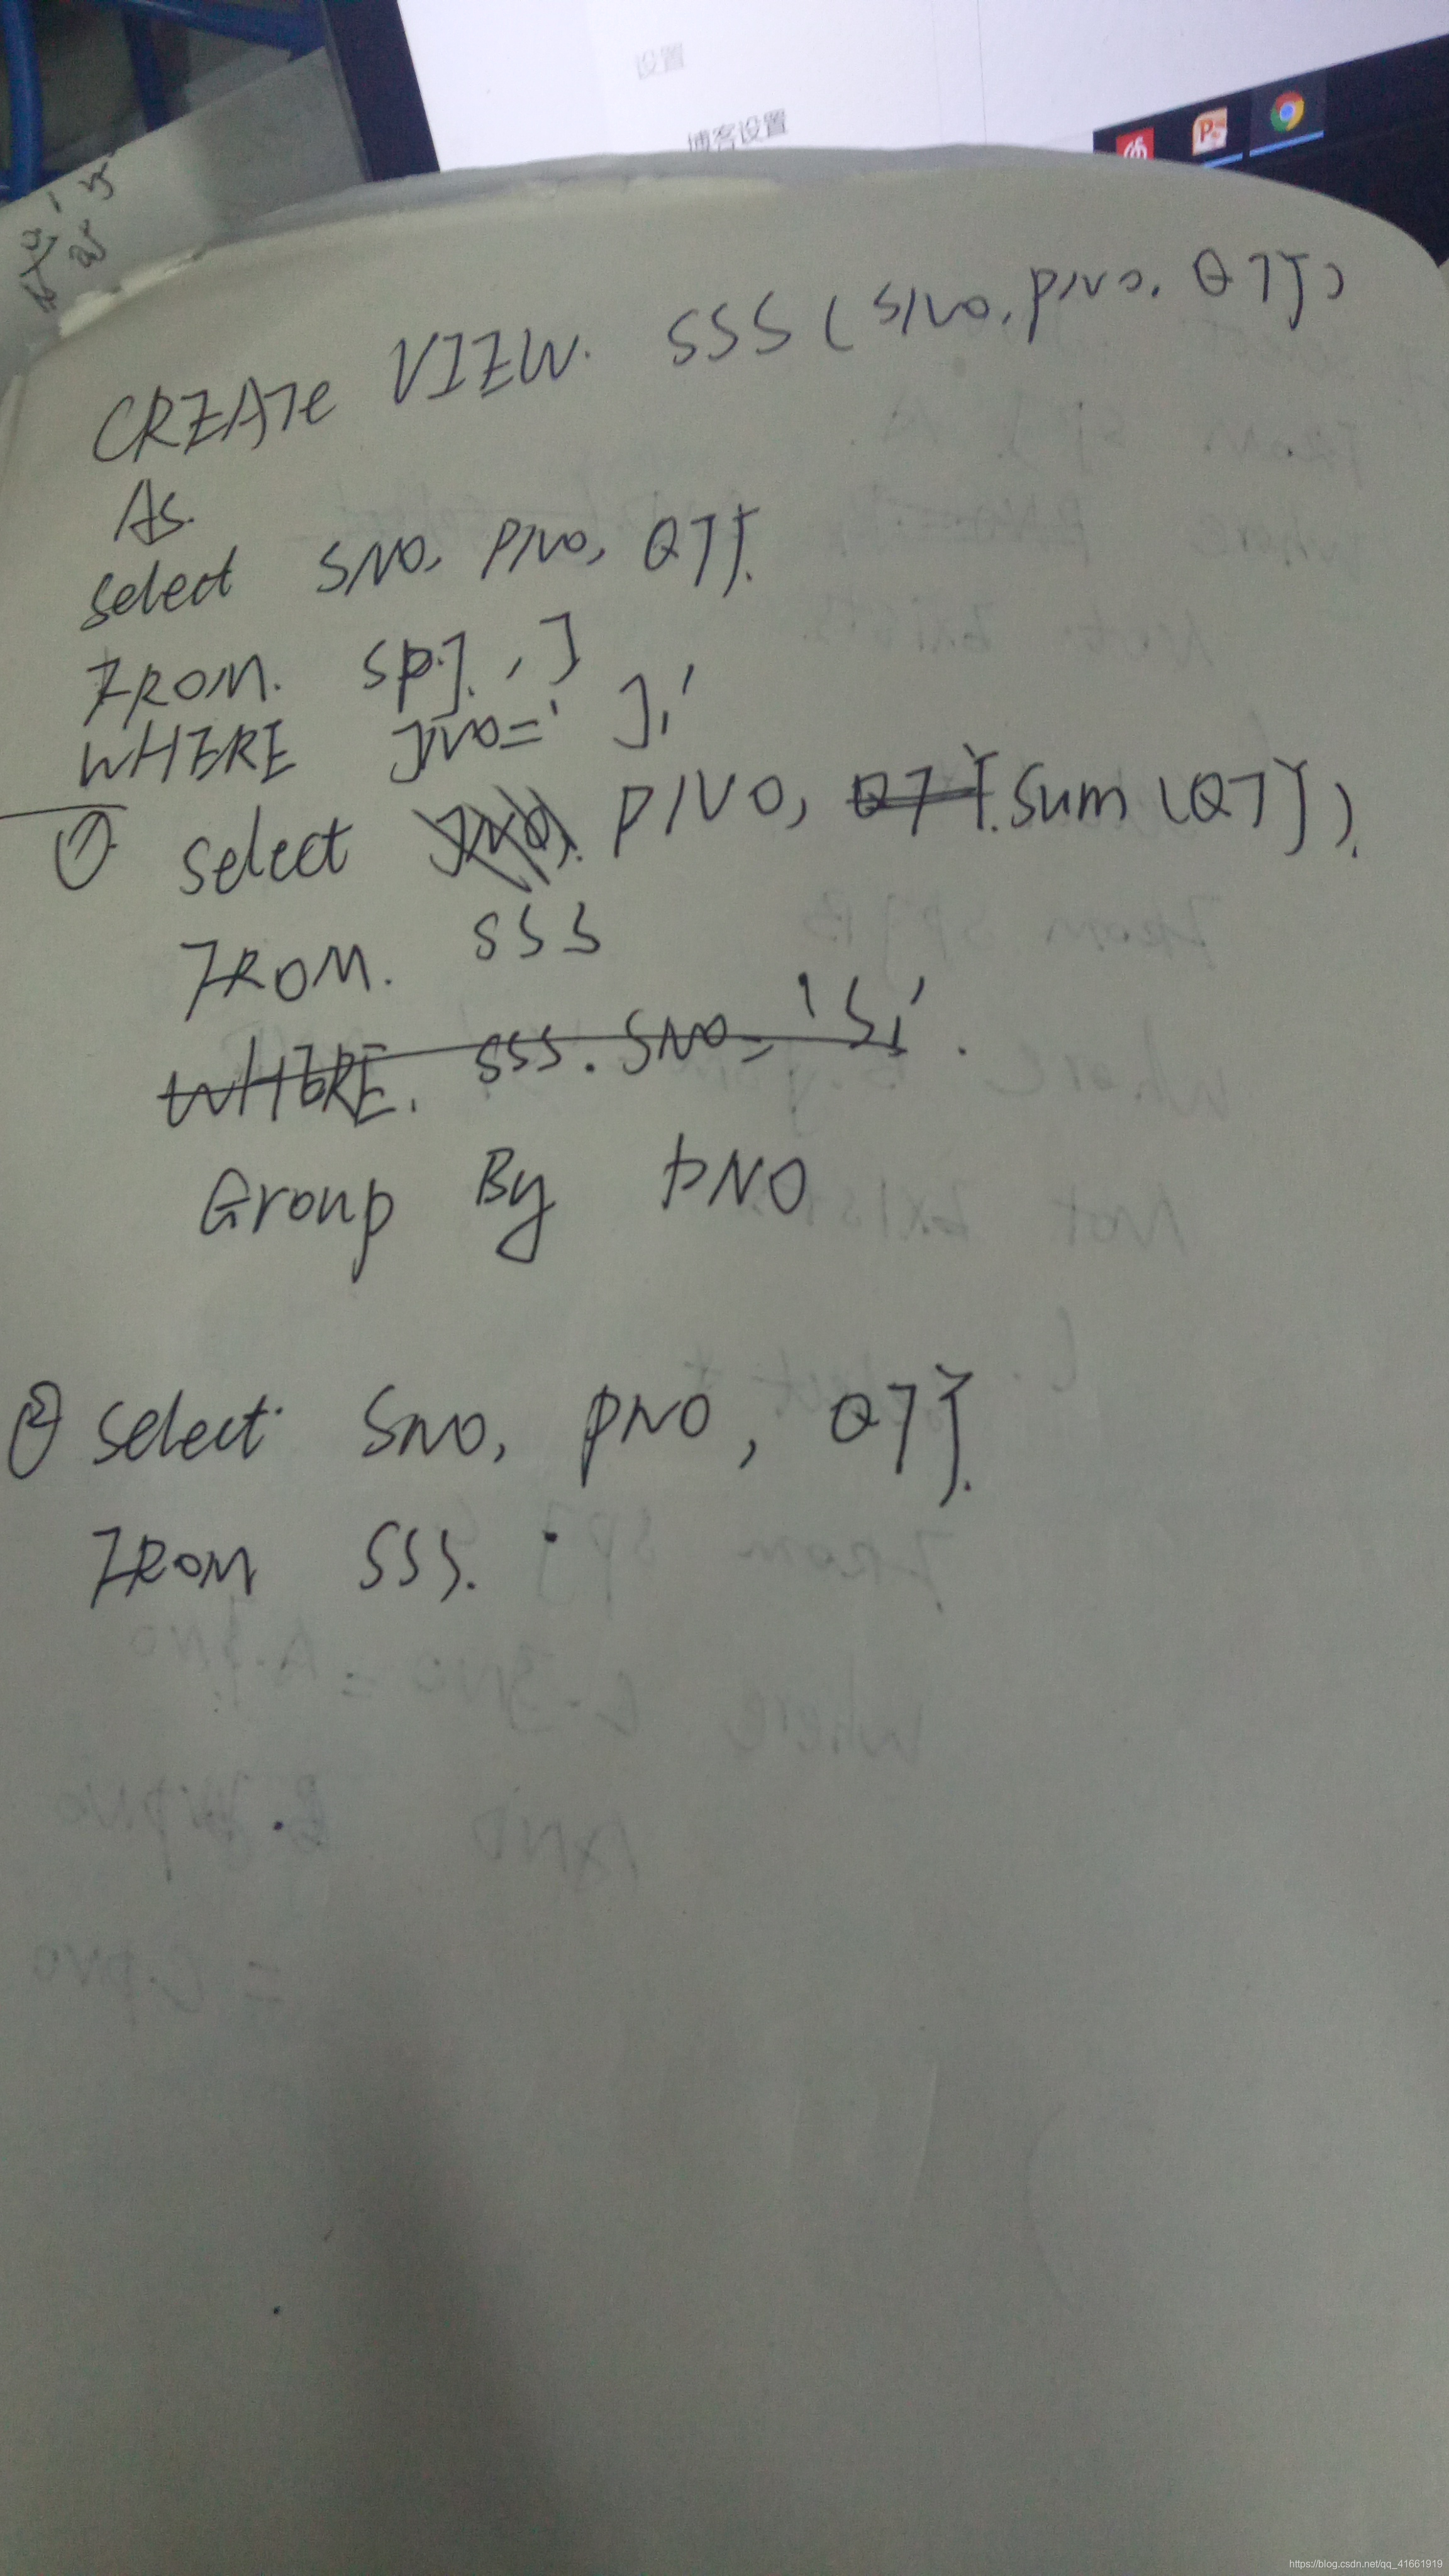 设置
博客设置
CREATe VIEW. SSS ( SNO, PNO, QTY)
As.
select SNO, PNO, QTY.
FROM. SPJ, J
WHERE JNO=' J1'
① select PNO, QTY. Sum (QTY).
FROM. SSS
WHERE. SSS. SNO= 'S1'.
Group By PNO
② select SNO, PNO, QTY.
FROM SSS.
https://blog.csdn.net/qq_41661919